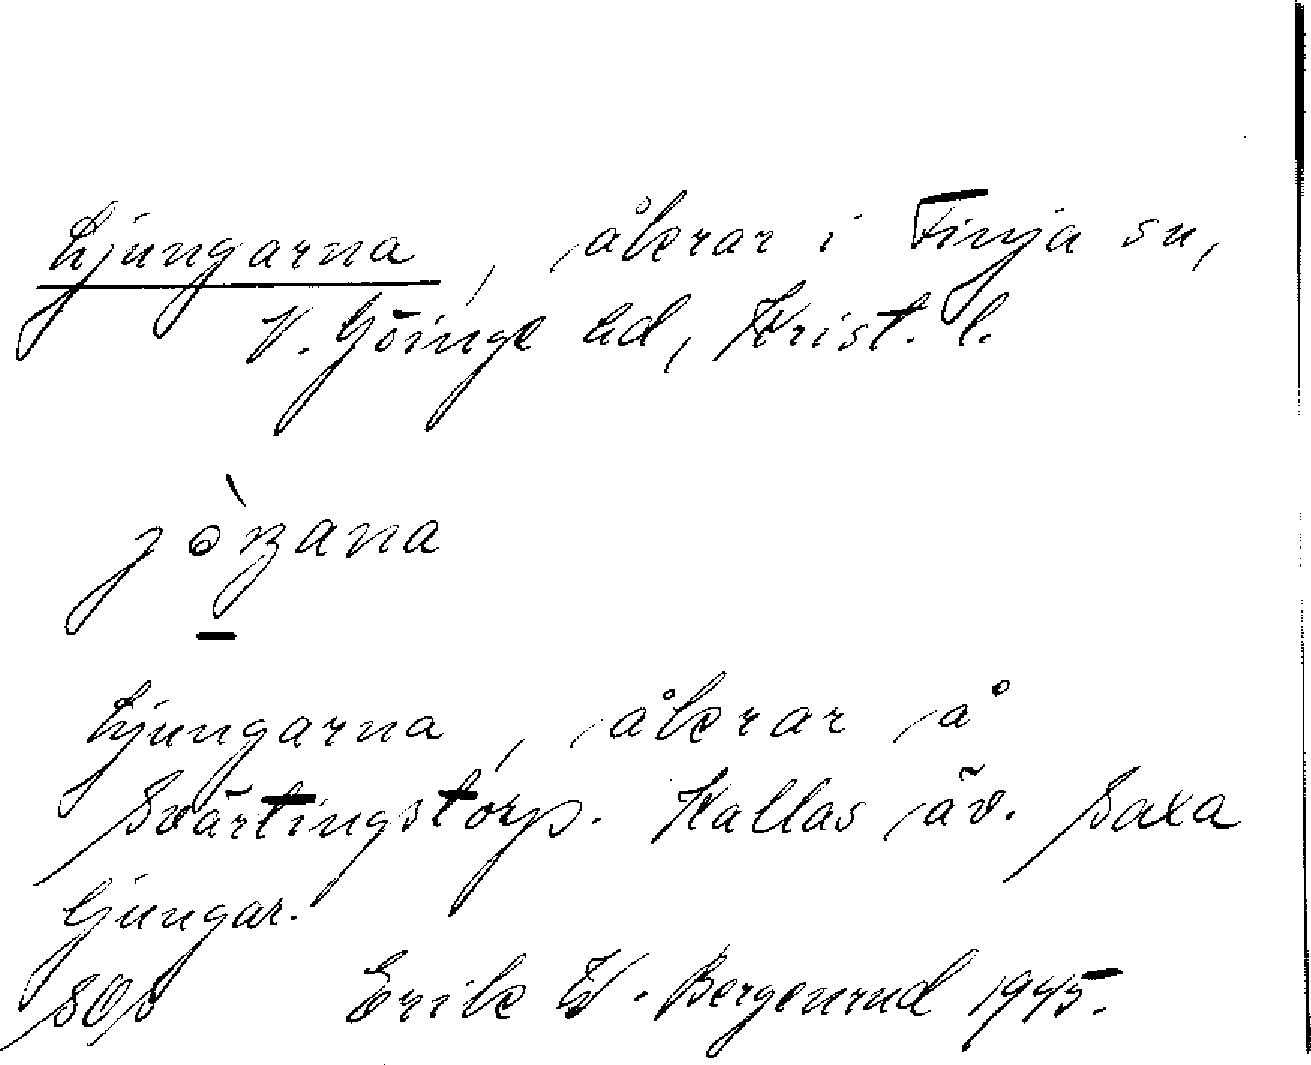 Ljungarna, åkrar i Finja sn,
V. Göinge hd, Krist. l.
Ljungarna, åkrar å
Svärtingstorp. Kallas äv. Saxa
ljungar.
Erik W. Bergenrud 1945.